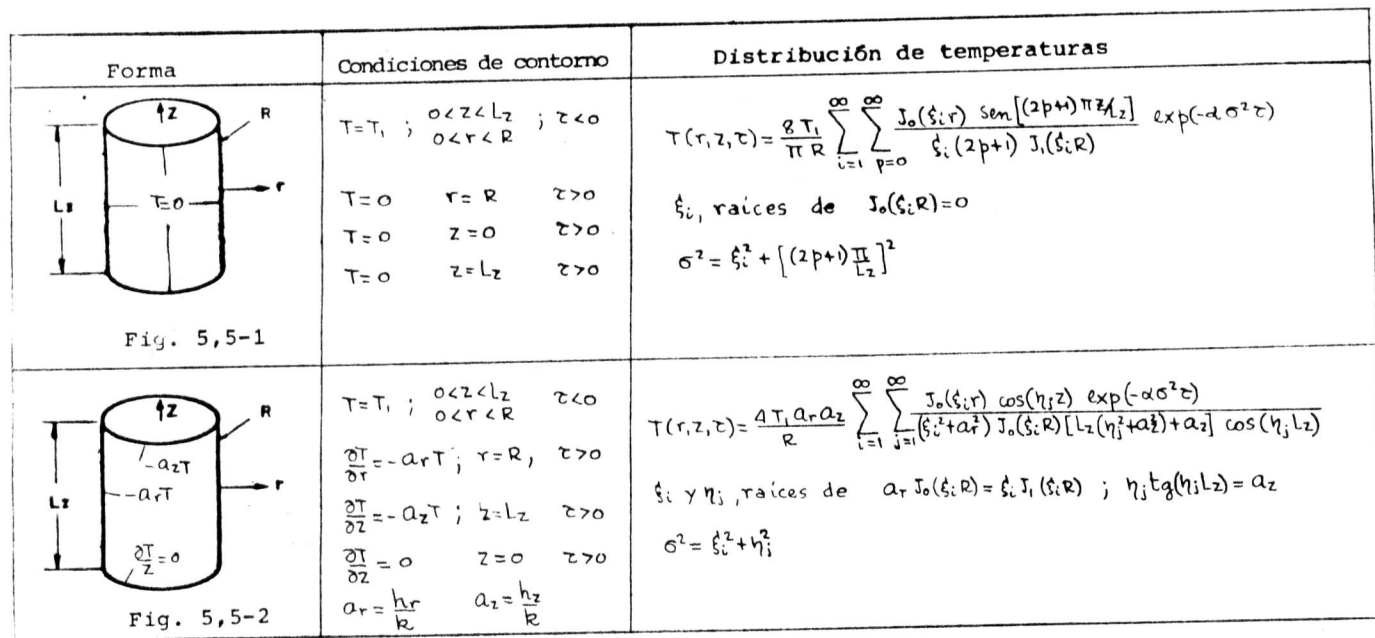 Forma
Condiciones de contorno
Distribución de temperaturas
z
R
r
Lz
T=0
Fig. 5,5-1
T=T₁ ; 0<z<Lz ; τ<0
0<r<R
T=0 r=R τ>0
T=0 z=0 τ>0
T=0 z=Lz τ>0
T(r,z,τ)= 8T₁/πR ∑_{i=1}^{∞} ∑_{p=0}^{∞} J₀(ξᵢr) sen[(2p+1)πz/Lz] / ξᵢ(2p+1) J₁(ξᵢR) exp(-ασ²τ)
ξᵢ, raíces de J₀(ξᵢR)=0
σ²=ξᵢ²+[(2p+1)π/Lz]²
z
R
r
Lz
-azT
-arT
∂T/z=0
Fig. 5,5-2
T=T₁ ; 0<z<Lz τ<0
0<r<R
∂T/∂r=-arT ; r=R, τ>0
∂T/∂z=-azT ; z=Lz τ>0
∂T/∂z=0 z=0 τ>0
ar=hr/k az=hz/k
T(r,z,τ)= 4T₁ar az/R ∑_{i=1}^{∞} ∑_{j=1}^{∞} J₀(ξᵢr) cos(ηⱼz) exp(-ασ²τ) / (ξᵢ²+ar²) J₀(ξᵢR)[Lz(ηⱼ²+az²)+az] cos(ηⱼLz)
ξᵢ y ηⱼ, raíces de ar J₀(ξᵢR)=ξᵢ J₁(ξᵢR) ; ηⱼtg(ηⱼLz)=az
σ²=ξᵢ²+ηⱼ²